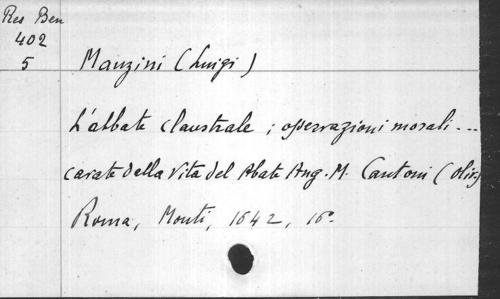 Res Ben
402
5
Manzini (Luigi)
L'abbate claustrale; osservazioni morali...
cavate della Vita del Abate Ang. M. Cantoni (Oliv)
Roma, Monti, 1642, 16°.